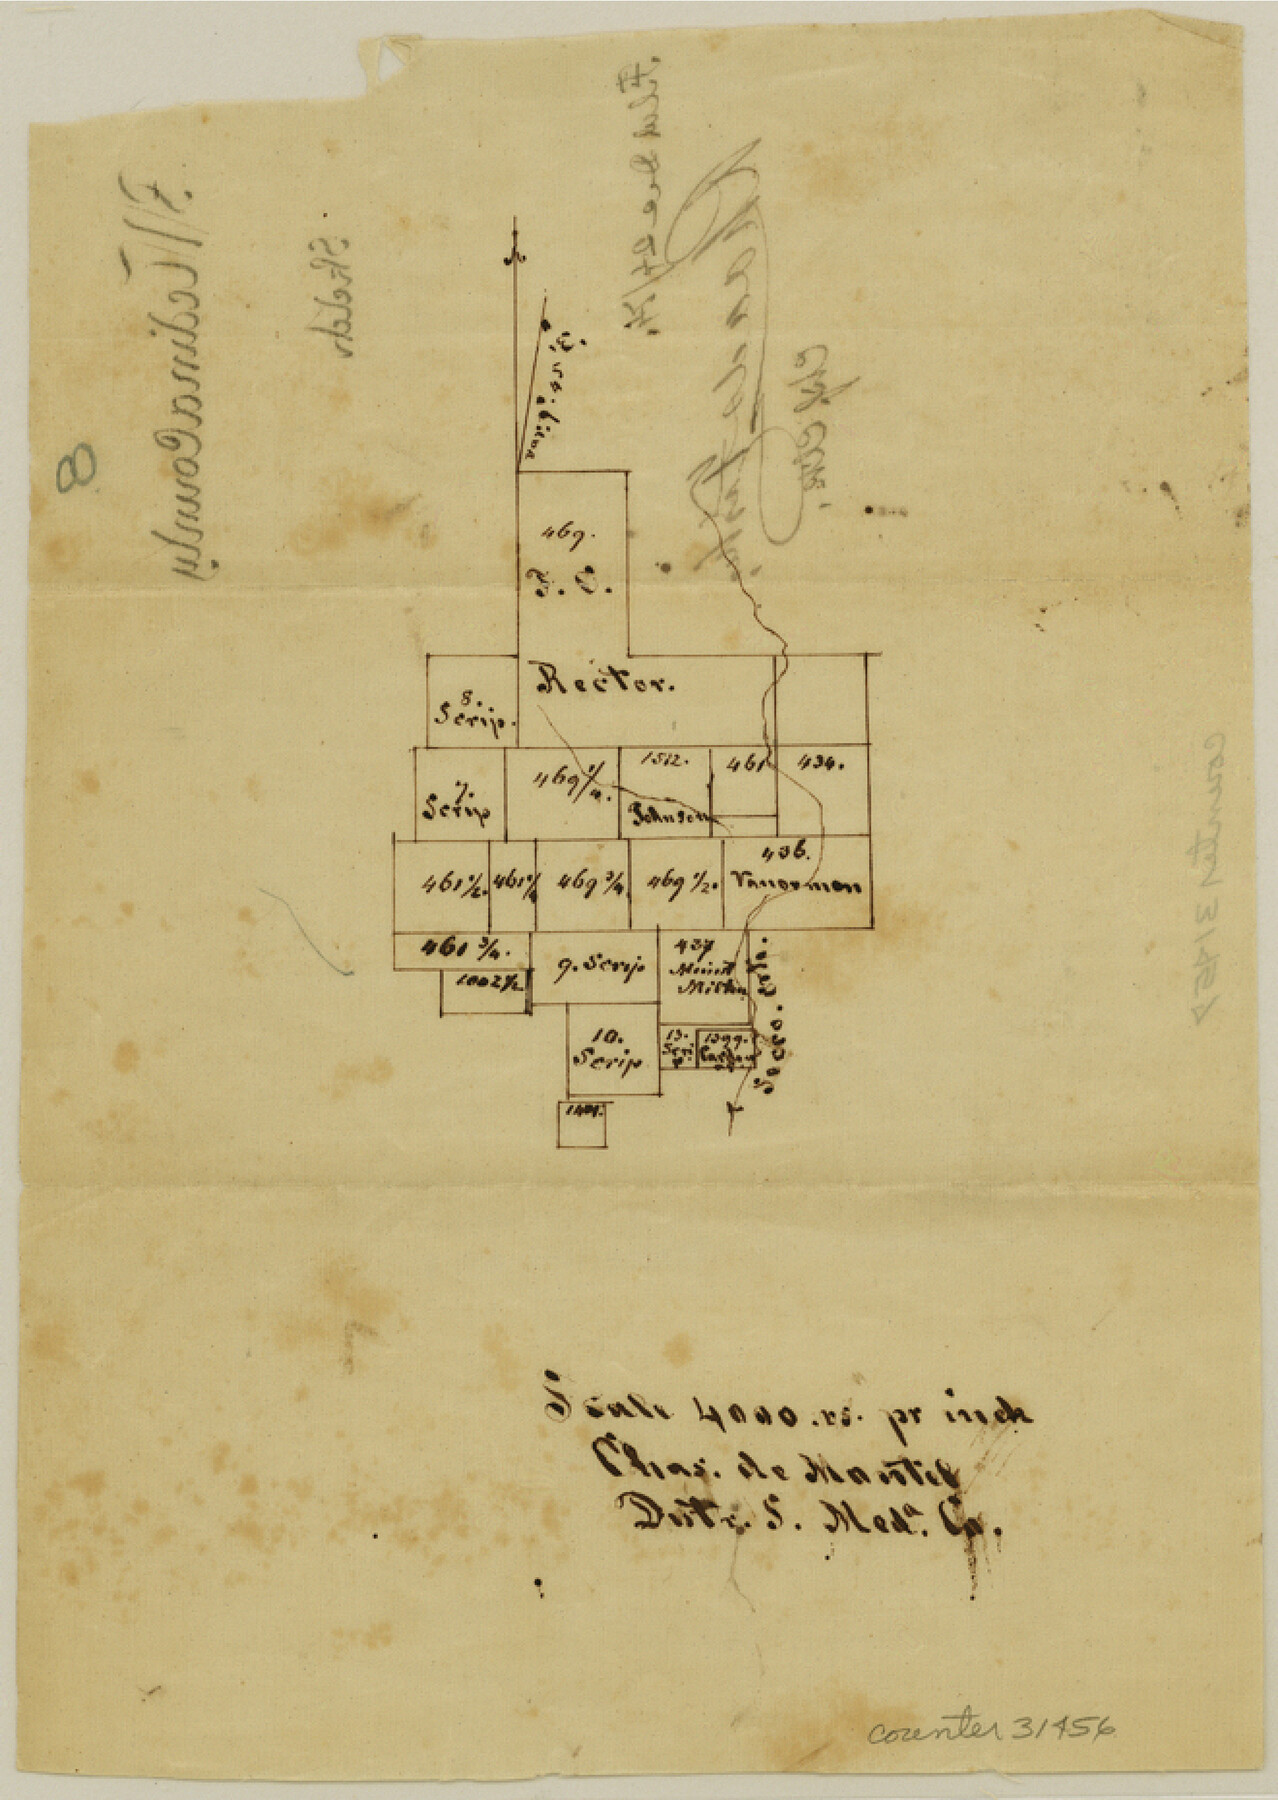 469.
F. C.
Rector.
8.
Scrip.
7.
Scrip
469 1/4.
1512.
Johnson
461
434.
461 1/2.
461 1/4
469 3/4
469 1/2.
436.
Vanorman
461 3/4.
1002 1/2
9. Scrip
437
10.
Scrip
13.
Scri
p.
1399.
1401.
Seco. Crk.
Scale 4000 vs. pr inch
Chas. de Montel
Distr. S. Meda. Co.
counter 31456
F. Medina County
Sketch
8
Filed Dec 24
counter 31456